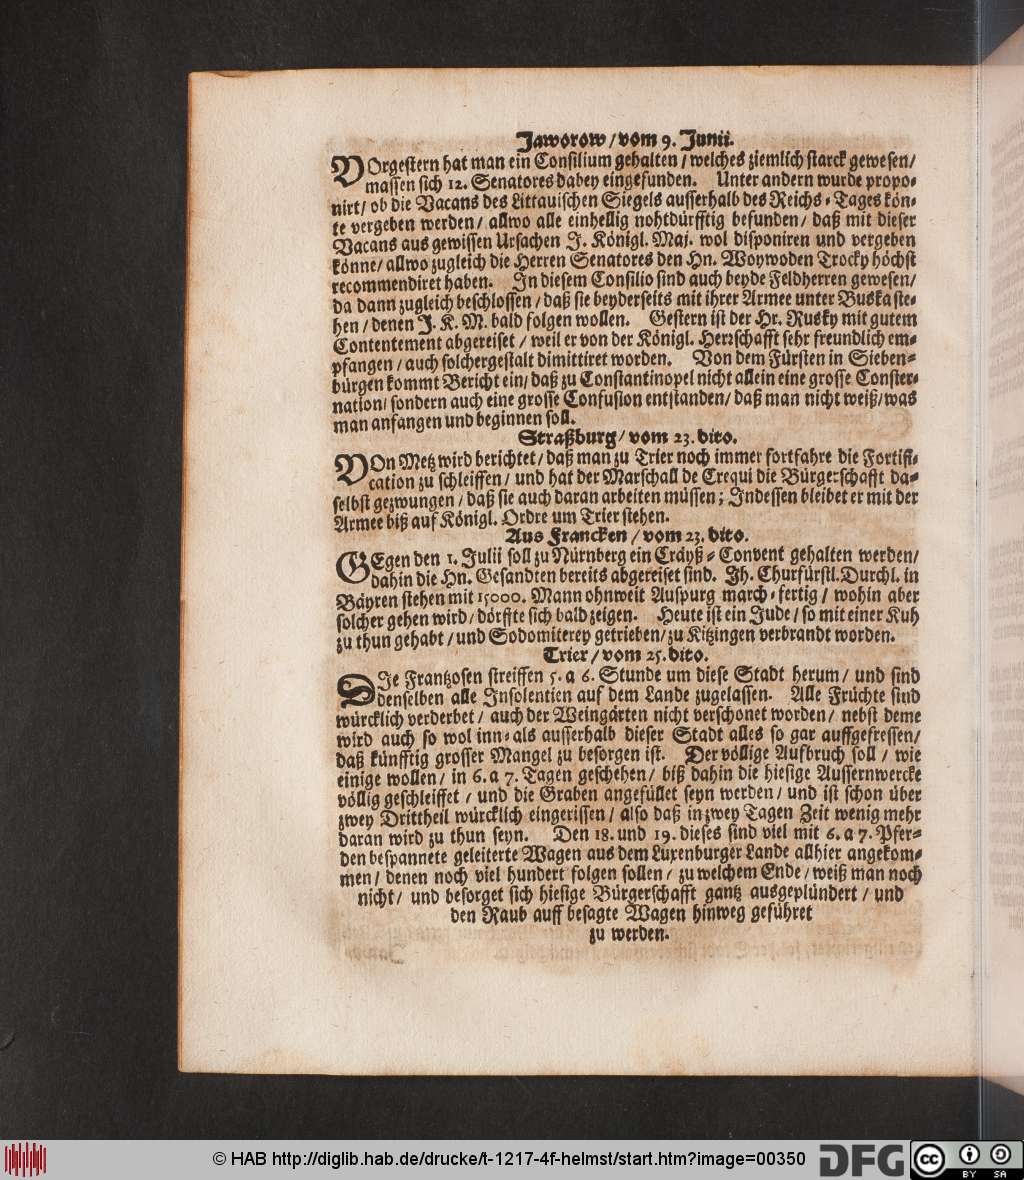 Jaworow / vom 9. Junii.
VOrgestern hat man ein Consilium gehalten / welches ziemlich starck gewesen /
massen sich 12. Senatores dabey eingefunden. Unter andern wurde propo-
nirt / ob die Vacans des Littauischen Siegels ausserhalb des Reichs-Tages kön-
te vergeben werden / allwo alle einhellig nohtdürfftig befunden / daß mit dieser
Vacans aus gewissen Ursachen J. Königl. Maj. wol disponiren und vergeben
könne / allwo zugleich die Herren Senatores den Hn. Woywoden Trocky höchst
recommendiret haben. In diesem Consilio sind auch beyde Feldherren gewesen /
da dann zugleich beschlossen / daß sie beyderseits mit ihrer Armee unter Buska ste-
hen / denen J. K. M. bald folgen wollen. Gestern ist der Hr. Rusky mit gutem
Contentement abgereiset / weil er von der Königl. Herrschafft sehr freundlich em-
pfangen / auch solchergestalt dimittiret worden. Von dem Fürsten in Sieben-
bürgen kommt Bericht ein / daß zu Constantinopel nicht allein eine grosse Conster-
nation / sondern auch eine grosse Confusion entstanden / daß man nicht weiß / was
man anfangen und beginnen soll.
Straßburg / vom 23. dito.
VOn Metz wird berichtet / daß man zu Trier noch immer fortfahre die Fortifi-
cation zu schleiffen / und hat der Marschall de Crequi die Bürgerschafft da-
selbst gezwungen / daß sie auch daran arbeiten müssen; Indessen bleibet er mit der
Armee biß auf Königl. Ordre um Trier stehen.
Aus Francken / vom 23. dito.
GEgen den 1. Julii soll zu Nürnberg ein Cräyß-Convent gehalten werden /
dahin die Hn. Gesandten bereits abgereiset sind. Ih. Churfürstl. Durchl. in
Bäyren stehen mit 15000. Mann ohnweit Auspurg march-fertig / wohin aber
solcher gehen wird / dörffte sich bald zeigen. Heute ist ein Jude / so mit einer Kuh
zu thun gehabt / und Sodomiterey getrieben / zu Kitzingen verbrandt worden.
Trier / vom 25. dito.
DIe Frantzosen streiffen 5. a 6. Stunde um diese Stadt herum / und sind
denselben alle Insolentien auf dem Lande zugelassen. Alle Früchte sind
würcklich verderbet / auch der Weingärten nicht verschonet worden / nebst deme
wird auch so wol inn- als ausserhalb dieser Stadt alles so gar auffgefressen /
daß künfftig grosser Mangel zu besorgen ist. Der völlige Aufbruch soll / wie
einige wollen / in 6. a 7. Tagen geschehen / biß dahin die hiesige Aussernwercke
völlig geschleiffet / und die Graben angefüllet seyn werden / und ist schon über
zwey Drittheil würcklich eingerissen / also daß in zwey Tagen Zeit wenig mehr
daran wird zu thun seyn. Den 18. und 19. dieses sind viel mit 6. a 7. Pfer-
den bespannete geleiterte Wagen aus dem Luxenburger Lande allhier angekom-
men / denen noch viel hundert folgen sollen / zu welchem Ende / weiß man noch
nicht / und besorget sich hiesige Bürgerschafft gantz ausgeplündert / und
den Raub auff besagte Wagen hinweg geführet
zu werden.
© HAB http://diglib.hab.de/drucke/t-1217-4f-helmst/start.htm?image=00350 DFG cc BY SA